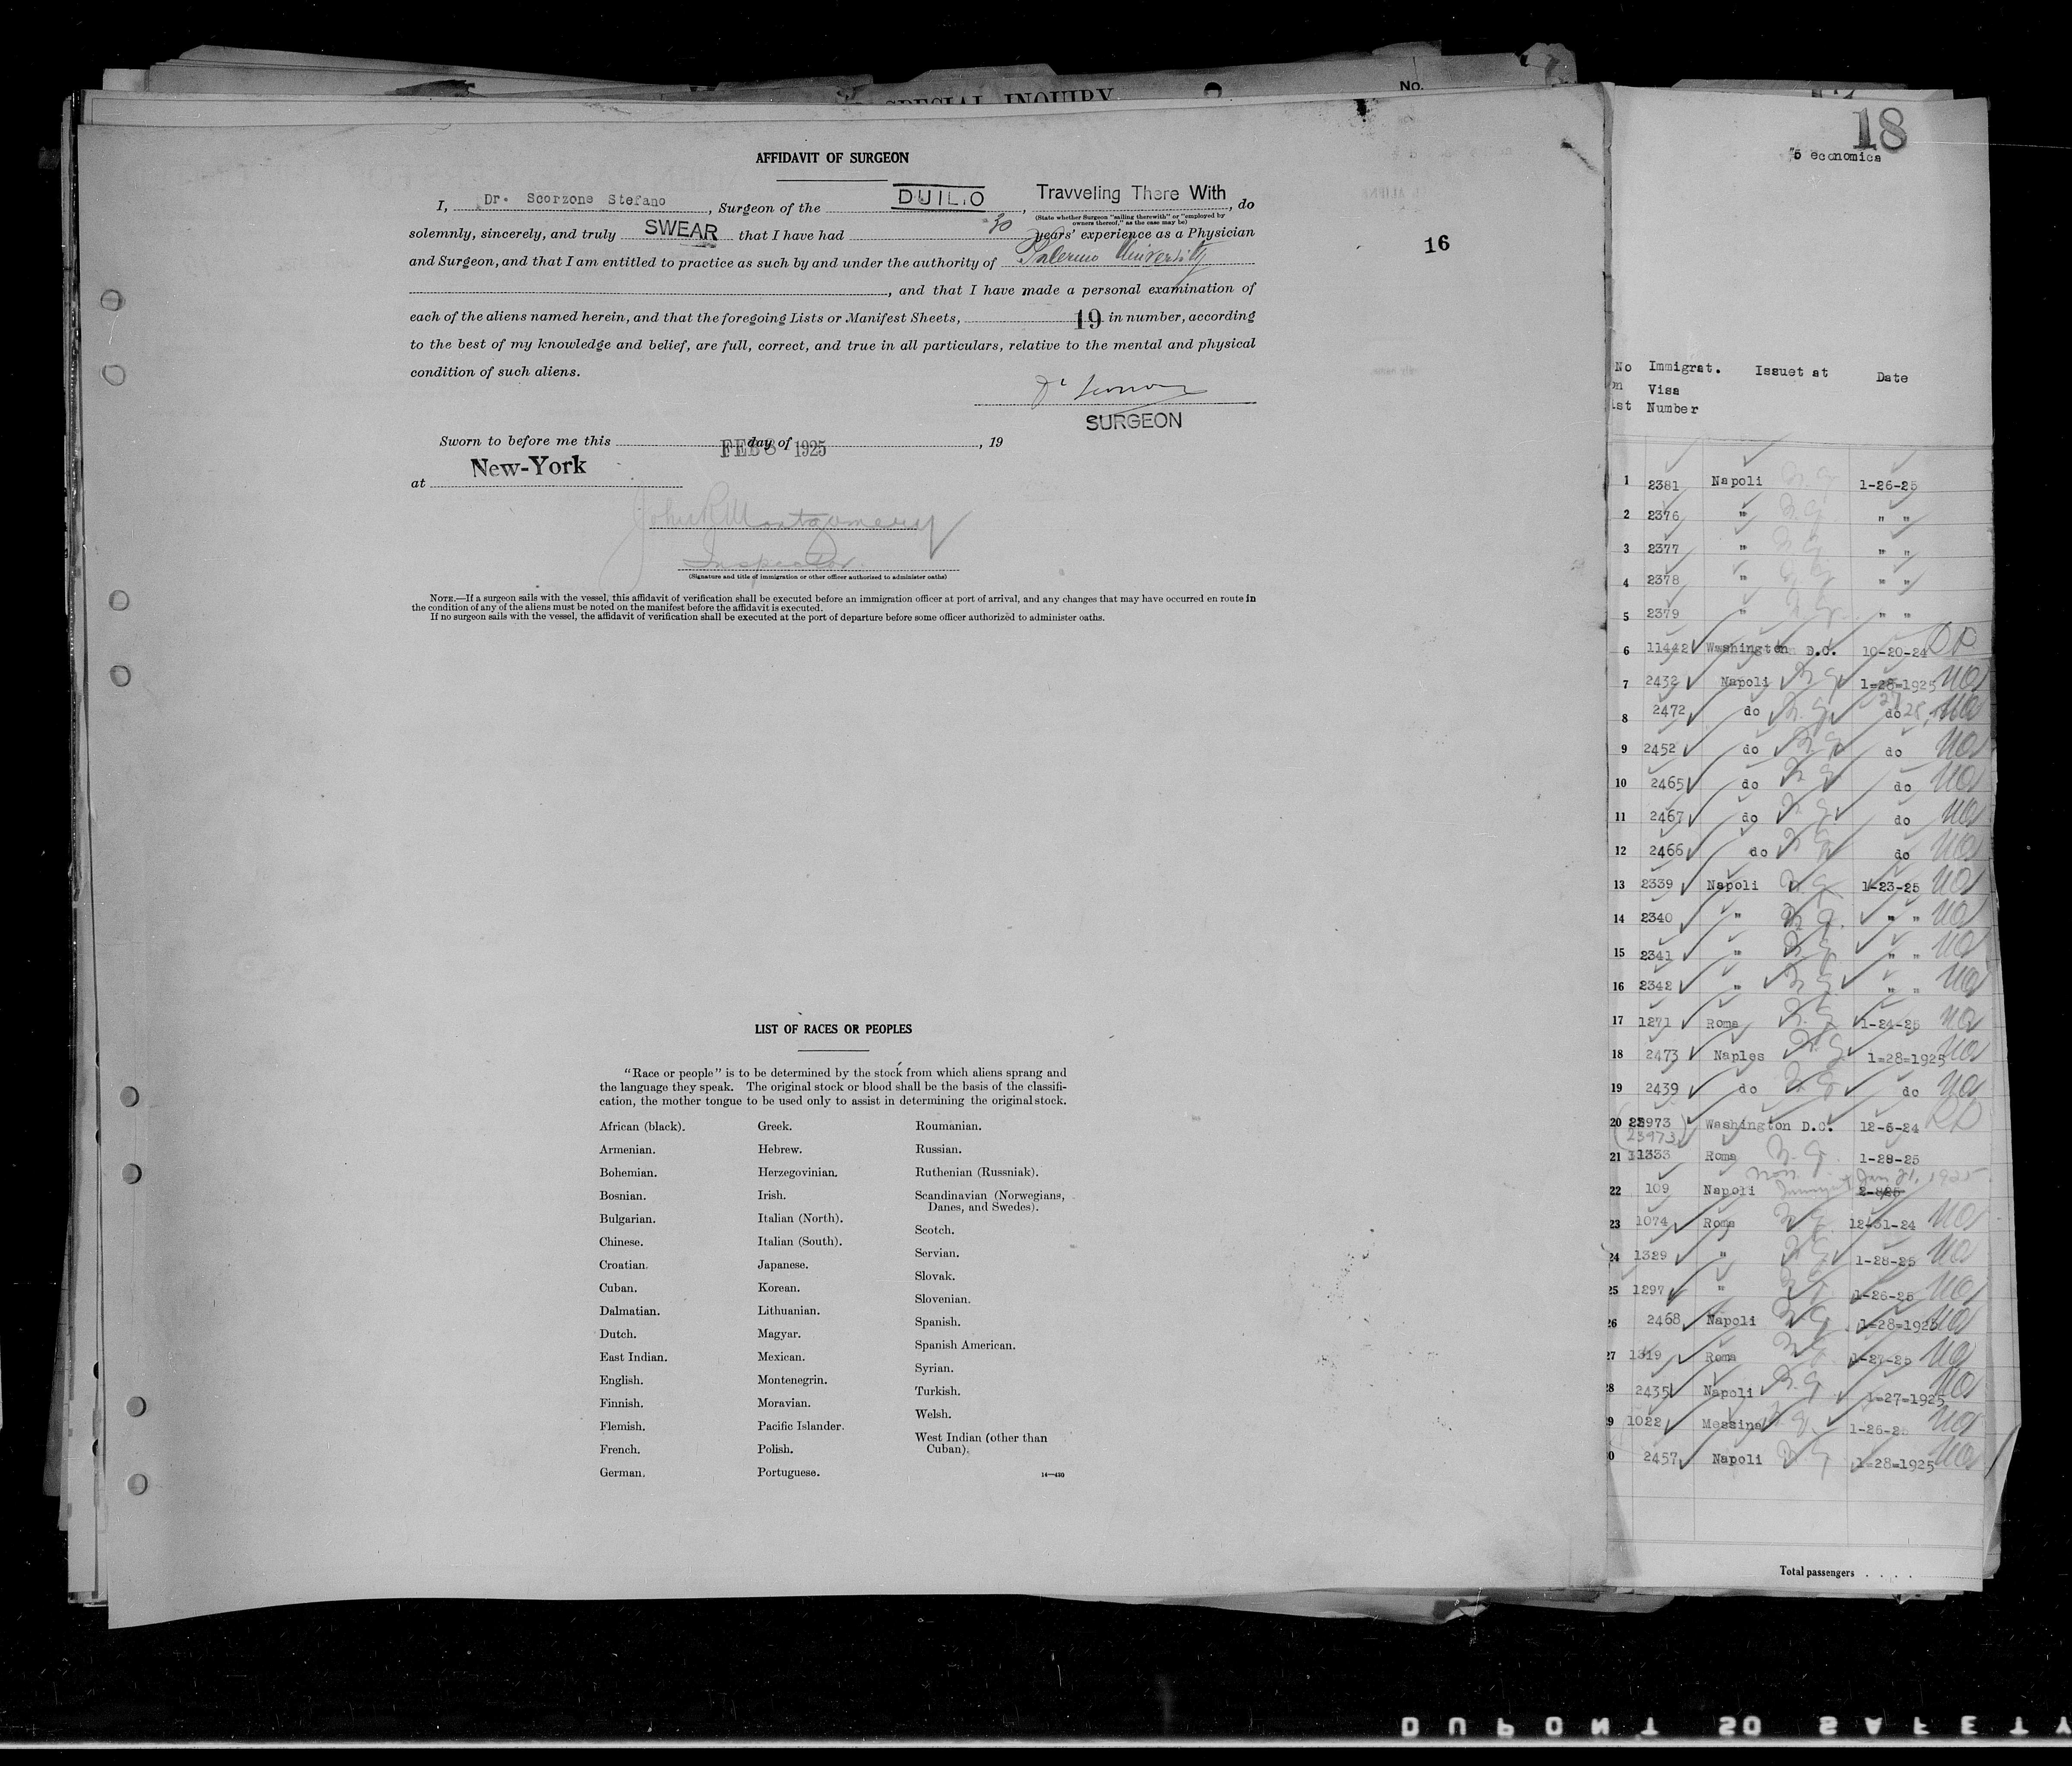 SPECIAL INQUIRY
No.
AFFIDAVIT OF SURGEON
I, Dr. Scorzone Stefano, Surgeon of the DUILIO, Travveling There With, do
(State whether Surgeon "sailing therewith" or "employed by
owners thereof," as the case may be)
solemnly, sincerely, and truly SWEAR that I have had 30 years' experience as a Physician
and Surgeon, and that I am entitled to practice as such by and under the authority of Palermo University
, and that I have made a personal examination of
each of the aliens named herein, and that the foregoing Lists or Manifest Sheets, 19 in number, according
to the best of my knowledge and belief, are full, correct, and true in all particulars, relative to the mental and physical
condition of such aliens.
SURGEON
Sworn to before me this FEB 8 1925 day of , 19
at New-York
John R Montgomery
Inspector
(Signature and title of immigration or other officer authorized to administer oaths)
NOTE.—If a surgeon sails with the vessel, this affidavit of verification shall be executed before an immigration officer at port of arrival, and any changes that may have occurred en route in
the condition of any of the aliens must be noted on the manifest before the affidavit is executed.
If no surgeon sails with the vessel, the affidavit of verification shall be executed at the port of departure before some officer authorized to administer oaths.
16
LIST OF RACES OR PEOPLES
"Race or people" is to be determined by the stock from which aliens sprang and
the language they speak. The original stock or blood shall be the basis of the classifi-
cation, the mother tongue to be used only to assist in determining the original stock.
African (black).
Armenian.
Bohemian.
Bosnian.
Bulgarian.
Chinese.
Croatian.
Cuban.
Dalmatian.
Dutch.
East Indian.
English.
Finnish.
Flemish.
French.
German.
Greek.
Hebrew.
Herzegovinian.
Irish.
Italian (North).
Italian (South).
Japanese.
Korean.
Lithuanian.
Magyar.
Mexican.
Montenegrin.
Moravian.
Pacific Islander.
Polish.
Portuguese.
Roumanian.
Russian.
Ruthenian (Russniak).
Scandinavian (Norwegians,
Danes, and Swedes).
Scotch.
Servian.
Slovak.
Slovenian.
Spanish.
Spanish American.
Syrian.
Turkish.
Welsh.
West Indian (other than
Cuban).
14—430
18
5 economica
No Immigrat. Issuet at Date
Visa
Number
1 2381 Napoli 1-26-25
2 2376 " " "
3 2377 " " "
4 2378 " " "
5 2379 " " "
6 11442 Washington D.C. 10-20-24
7 2432 Napoli 1=28=1925
8 2472 do do 28
9 2452 do do
10 2465 do do
11 2467 do do
12 2466 do do
13 2339 Napoli 1-23-25
14 2340 " " "
15 2341 " " "
16 2342 " " "
17 1271 Roma 1-24-25
18 2473 Naples 1=28=1925
19 2439 do do
20 23973 Washington D.C. 12-6-24
(23973)
21 1333 Roma 1-28-25
Non Jan 21, 1925
22 109 Napoli 2-8-25
23 1074 Roma 12-31-24
24 1329 " 1-28-25
25 1297 " 1-26-25
26 2468 Napoli 1=28=1925
27 1319 Roma 1-27-25
28 2435 Napoli 1=27=1925
29 1022 Messina 1-26-2
0 2457 Napoli 1=28=1925
Total passengers . . . .
DUPONT SO SAFETY